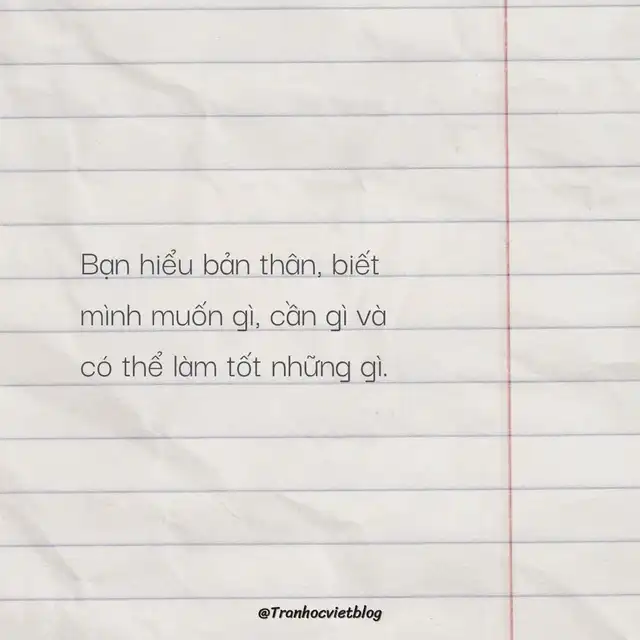 Bạn hiểu bản thân, biết
mình muốn gì, cần gì và
có thể làm tốt những gì.
@Tranhocvietblog